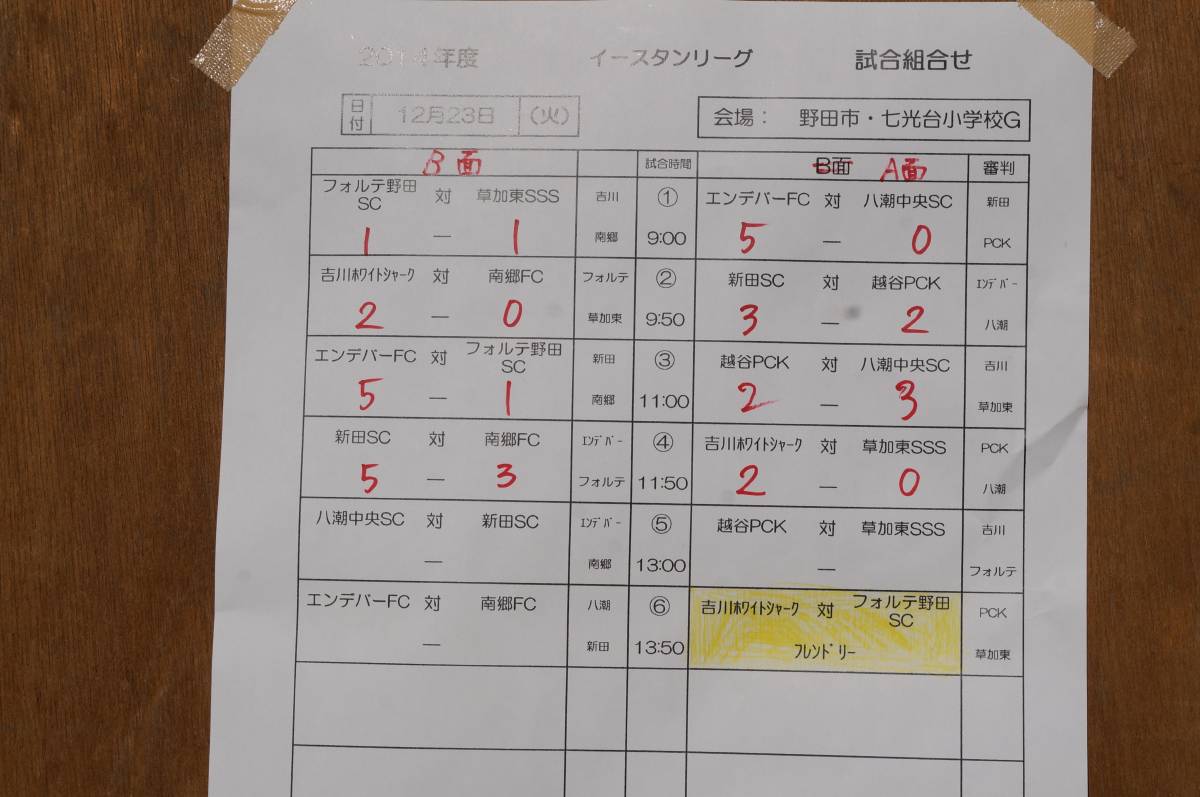 2014年度 イースタンリーグ 試合組合せ
日付 12月23日 (火) 会場： 野田市・七光台小学校G
B面 試合時間 B面 A面 審判
フォルテ野田SC 対 草加東SSS 吉川 ① エンデバーFC 対 八潮中央SC 新田
1 — 1 南郷 9:00 5 — 0 PCK
吉川ﾎﾜｲﾄｼｬｰｸ 対 南郷FC フォルテ ② 新田SC 対 越谷PCK ｴﾝﾃﾞﾊﾞｰ
2 — 0 草加東 9:50 3 — 2 八潮
エンデバーFC 対 フォルテ野田SC 新田 ③ 越谷PCK 対 八潮中央SC 吉川
5 — 1 南郷 11:00 2 — 3 草加東
新田SC 対 南郷FC ｴﾝﾃﾞﾊﾞｰ ④ 吉川ﾎﾜｲﾄｼｬｰｸ 対 草加東SSS PCK
5 — 3 フォルテ 11:50 2 — 0 八潮
八潮中央SC 対 新田SC ｴﾝﾃﾞﾊﾞｰ ⑤ 越谷PCK 対 草加東SSS 吉川
— 南郷 13:00 — フォルテ
エンデバーFC 対 南郷FC 八潮 ⑥ 吉川ﾎﾜｲﾄｼｬｰｸ 対 フォルテ野田SC PCK
— 新田 13:50 ﾌﾚﾝﾄﾞﾘｰ 草加東